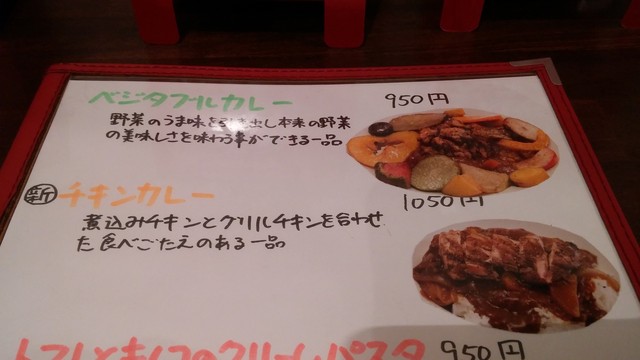 ベジタブルカレー 950円
野菜のうま味を引き出し本来の野菜
の美味しさを味わう事ができる一品
新 チキンカレー 1050円
煮込みチキンとグリルチキンを合わせ
た食べごたえのある一品
クリームパスタ 950円